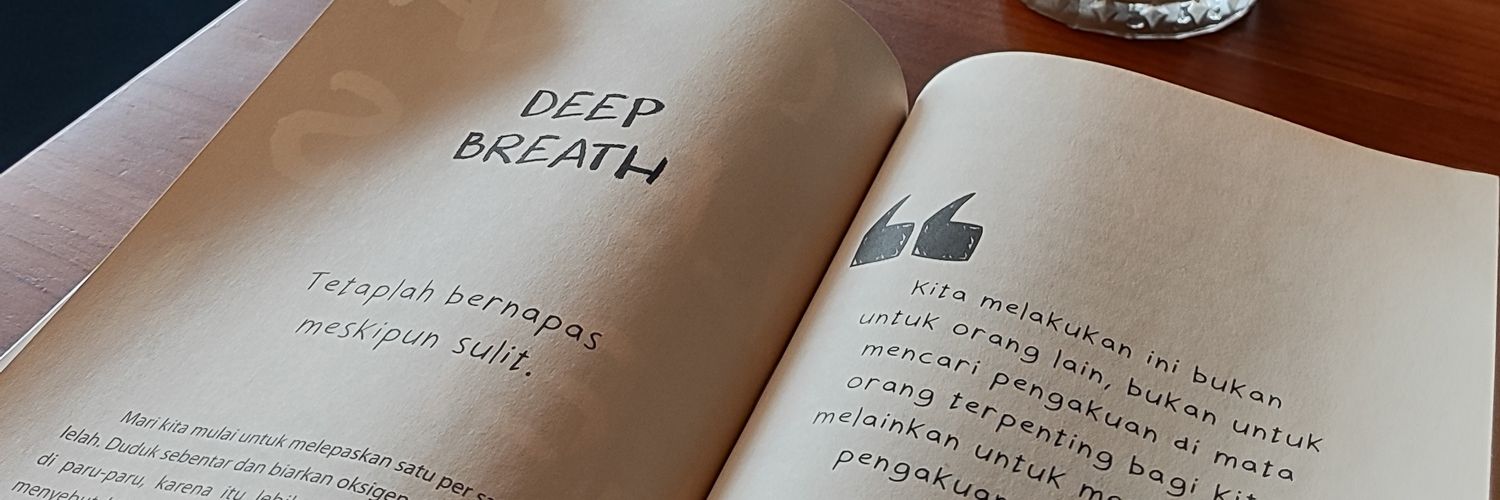 DEEP
BREATH
Tetaplah bernapas
meskipun sulit.
Mari kita mulai untuk melepaskan satu per
lelah. Duduk sebentar dan biarkan oksigen
di paru-paru, karena itu
“
Kita melakukan ini bukan
untuk orang lain, bukan untuk
mencari pengakuan di mata
orang terpenting bagi
melainkan untuk